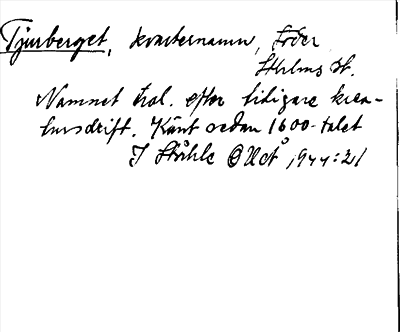 Tjurberget, kvartersnamn, Söder
Sthlms st.
Namnet trol. efter tidigare krea-
tursdrift. Känt sedan 1600-talet
I Ståhle OUCÅ 1944:21